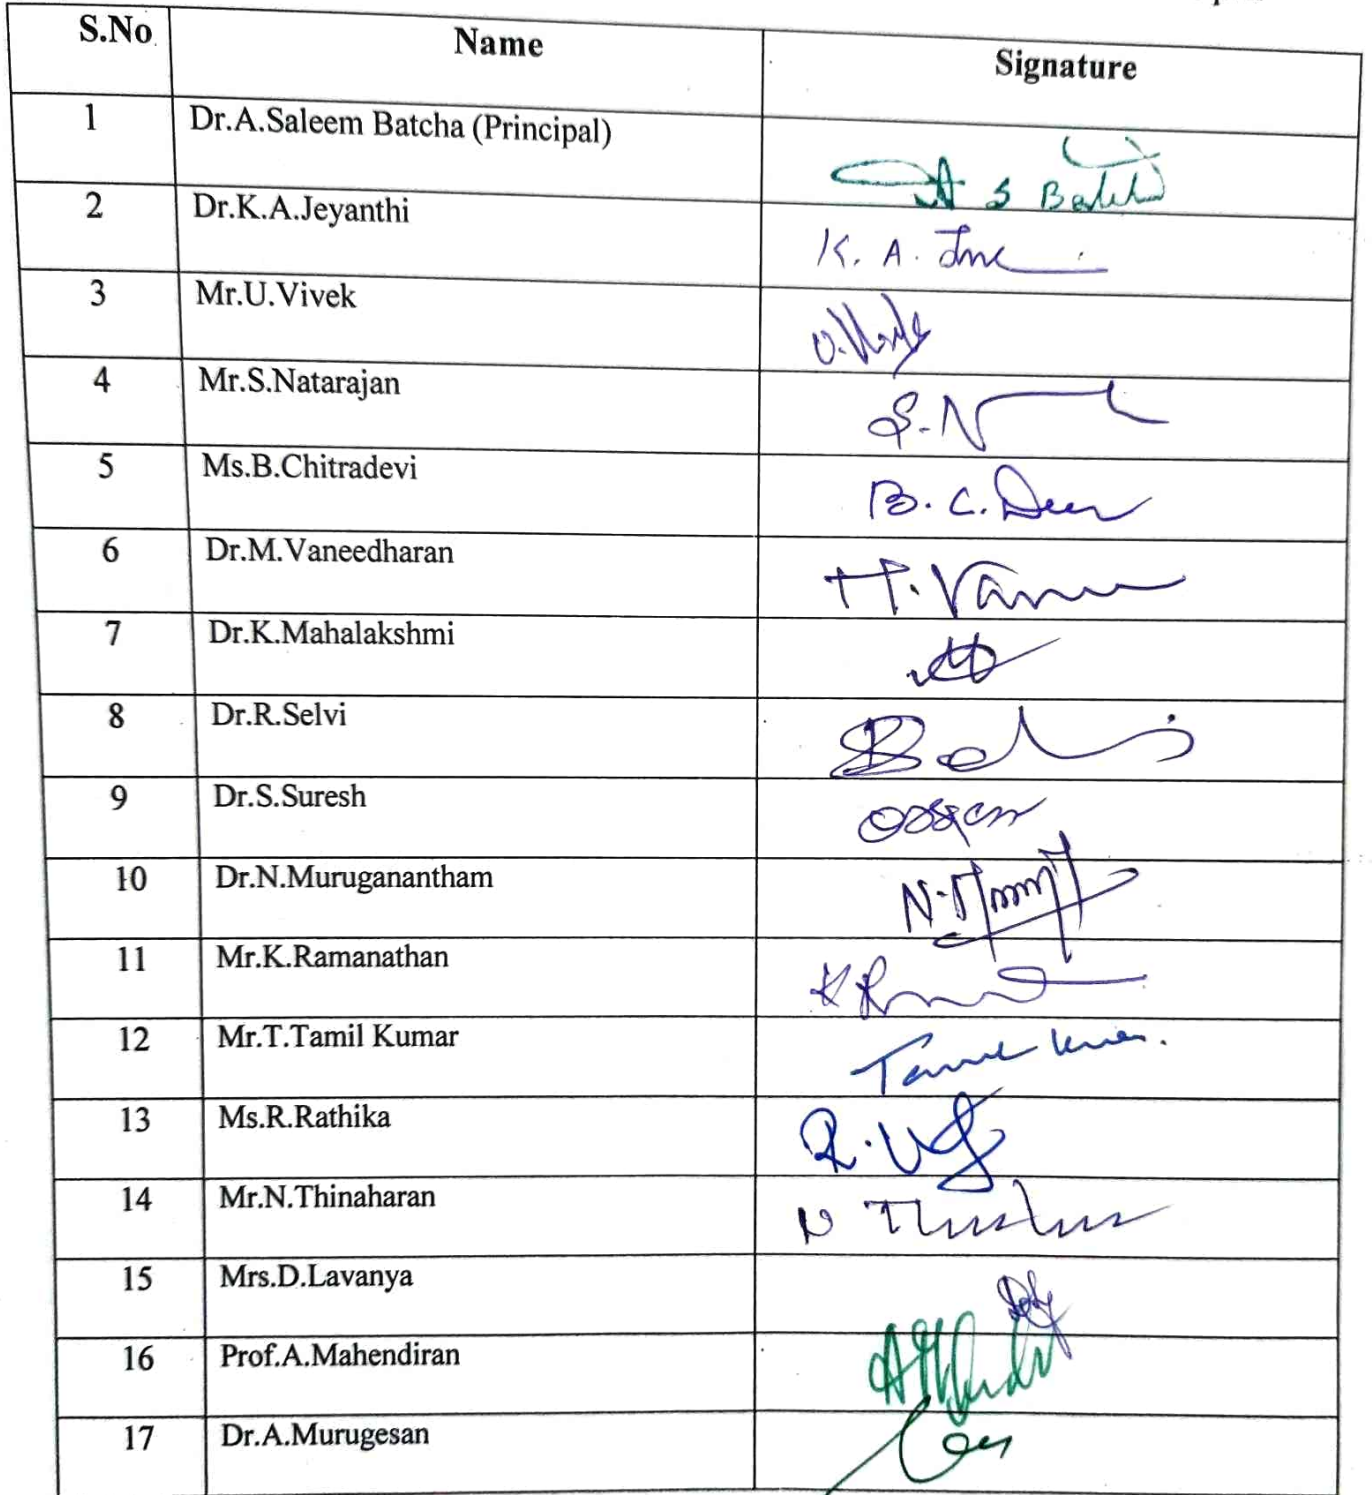 S.No Name Signature
1 Dr.A.Saleem Batcha (Principal) A S Batch
2 Dr.K.A.Jeyanthi K. A.
3 Mr.U.Vivek
4 Mr.S.Natarajan S. N
5 Ms.B.Chitradevi B. C. Devi
6 Dr.M.Vaneedharan M. Van
7 Dr.K.Mahalakshmi
8 Dr.R.Selvi
9 Dr.S.Suresh
10 Dr.N.Muruganantham N.
11 Mr.K.Ramanathan K R
12 Mr.T.Tamil Kumar Tamil Kumar.
13 Ms.R.Rathika R.
14 Mr.N.Thinaharan N
15 Mrs.D.Lavanya
16 Prof.A.Mahendiran
17 Dr.A.Murugesan